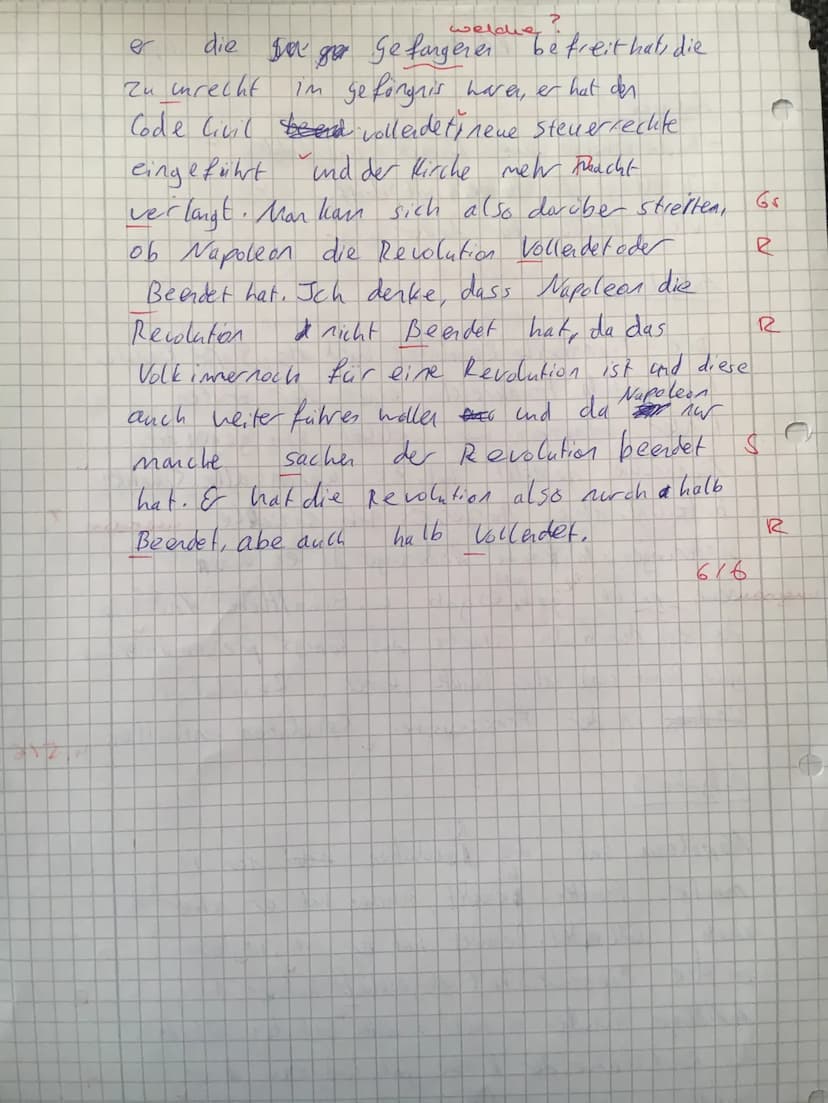 welche?
er die Gefangenen befreit hat, die
zu unrecht im gefängnis waren, er hat den
Code Civil vollendet, neue Steuerrechte
eingeführt und der Kirche mehr Macht
verlangt. Man kann sich also darüber streiten, Gs
ob Napoleon die Revolution Vollendet oder R
Beendet hat. Ich denke, dass Napoleon die
Revolution nicht Beendet hat, da das R
Volk immernoch für eine Revolution ist und diese
auch weiter führen wollen und da Napoleon nur
manche sachen der Revolution beendet S
hat. Er hat die Revolution also nurch halb
Beendet, abe auch halb Vollendet. R
6/6